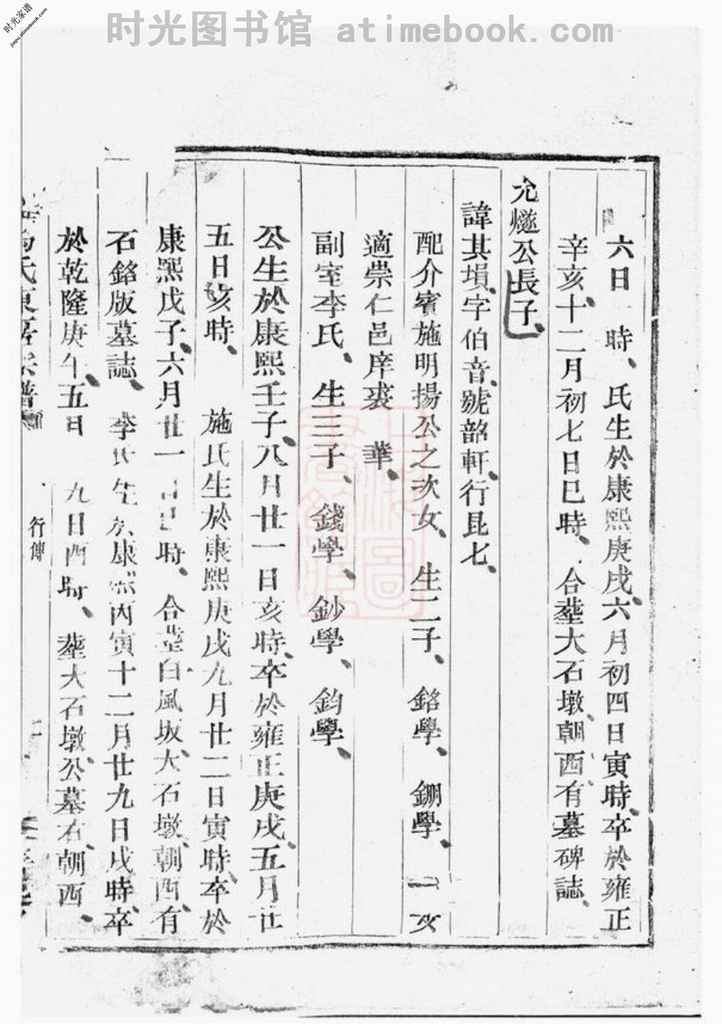 时光图书馆 atimebook.com
时光家谱
六日 時、氏生於康熙庚戌、六月初四日寅時、卒於雍正
辛亥、十二月初七日巳時、合塟大石墩、朝酉有墓碑誌、
允燧公長子、
諱其塤、字伯音、號韶軒、行昆七、
配介賓施明揚公之次女、生二子、銘學、鋤學、一女
適崇仁邑庠裘 華、
副室李氏、生三子、錢學、鈔學、鈞學、
公生於康熙壬子、八月廿一日亥時、卒於雍正庚戌、五月廿
五日亥時、 施氏生於康熙庚戌九月廿二日寅時、卒於
康熙戊子、六月廿一日 時、合塟白風坂、大石墩、朝酉、有
石銘版墓誌、 李氏生於康熙丙寅十二月廿九日戌時、卒
於乾隆庚午、五月 九日酉時、塟大石墩、公墓右、朝酉、
氏東 宗譜
行傳